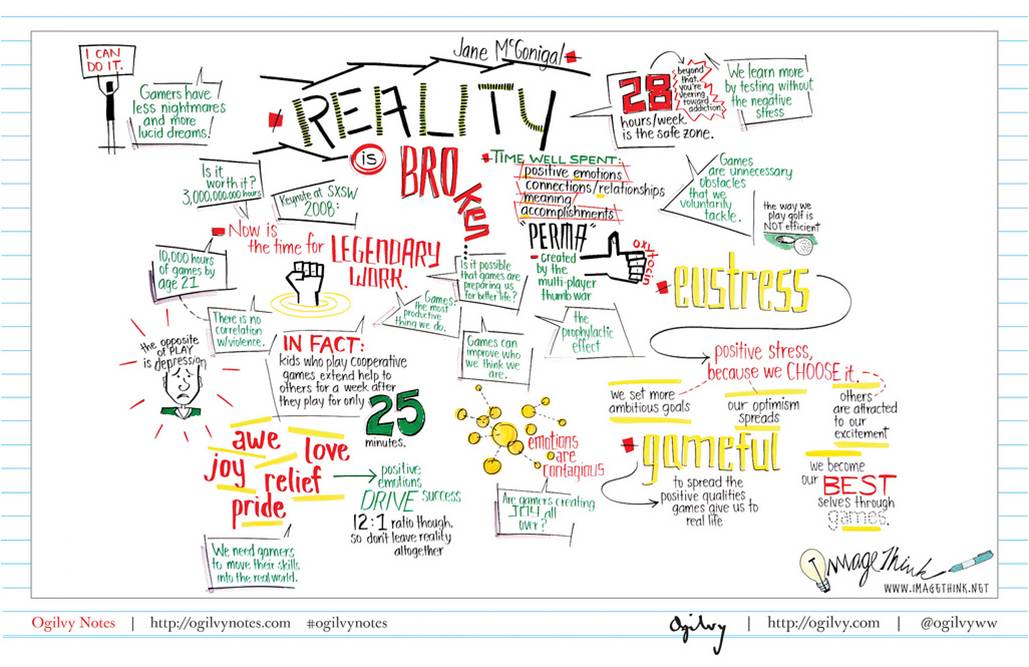 I CAN
DO IT.
Gamers have
less nightmares
and more
lucid dreams!
Jane McGonigal
REALITY
is
BROKEN
28
hours/week
is the safe zone.
beyond
that,
you're
veering
toward
addiction
We learn more
by testing without
the negative
stress
Is it
worth it?
3,000,000,000 hours
Keynote at SXSW
2008:
TIME WELL SPENT:
positive emotions
connections/relationships
meaning
accomplishments
"PERMA"
- created
by the
multi-player
thumb war
oxytocin
Games
are unnecessary
obstacles
that we
voluntarily
tackle.
the way we
play golf is
NOT efficient
Now is
the time for
LEGENDARY
WORK.
10,000 hours
of games by
age 21
There is no
correlation
w/violence.
Is it possible
that games are
preparing us
for better life?
Games:
the most
productive
thing we do.
Games can
improve who
we think we
are.
the
prophylactic
effect
eustress
positive stress,
because we CHOOSE it.
the opposite
of PLAY
is depression
IN FACT:
kids who play cooperative
games extend help to
others for a week after
they play for only
25
minutes.
we set more
ambitious goals
our optimism
spreads
others
are attracted
to our
excitement
awe
love
joy
relief
pride
positive
emotions
DRIVE success
12:1 ratio though,
so don't leave reality
altogether
emotions
are
contagious
Are gamers creating
JOY all
over?
gameful
to spread the
positive qualities
games give us to
real life
we become
our BEST
selves through
games.
We need gamers
to move their skills
into the real world.
ImageThink
WWW.IMAGETHINK.NET
Ogilvy Notes | http://ogilvynotes.com #ogilvynotes
Ogilvy | http://ogilvy.com | @ogilvyww